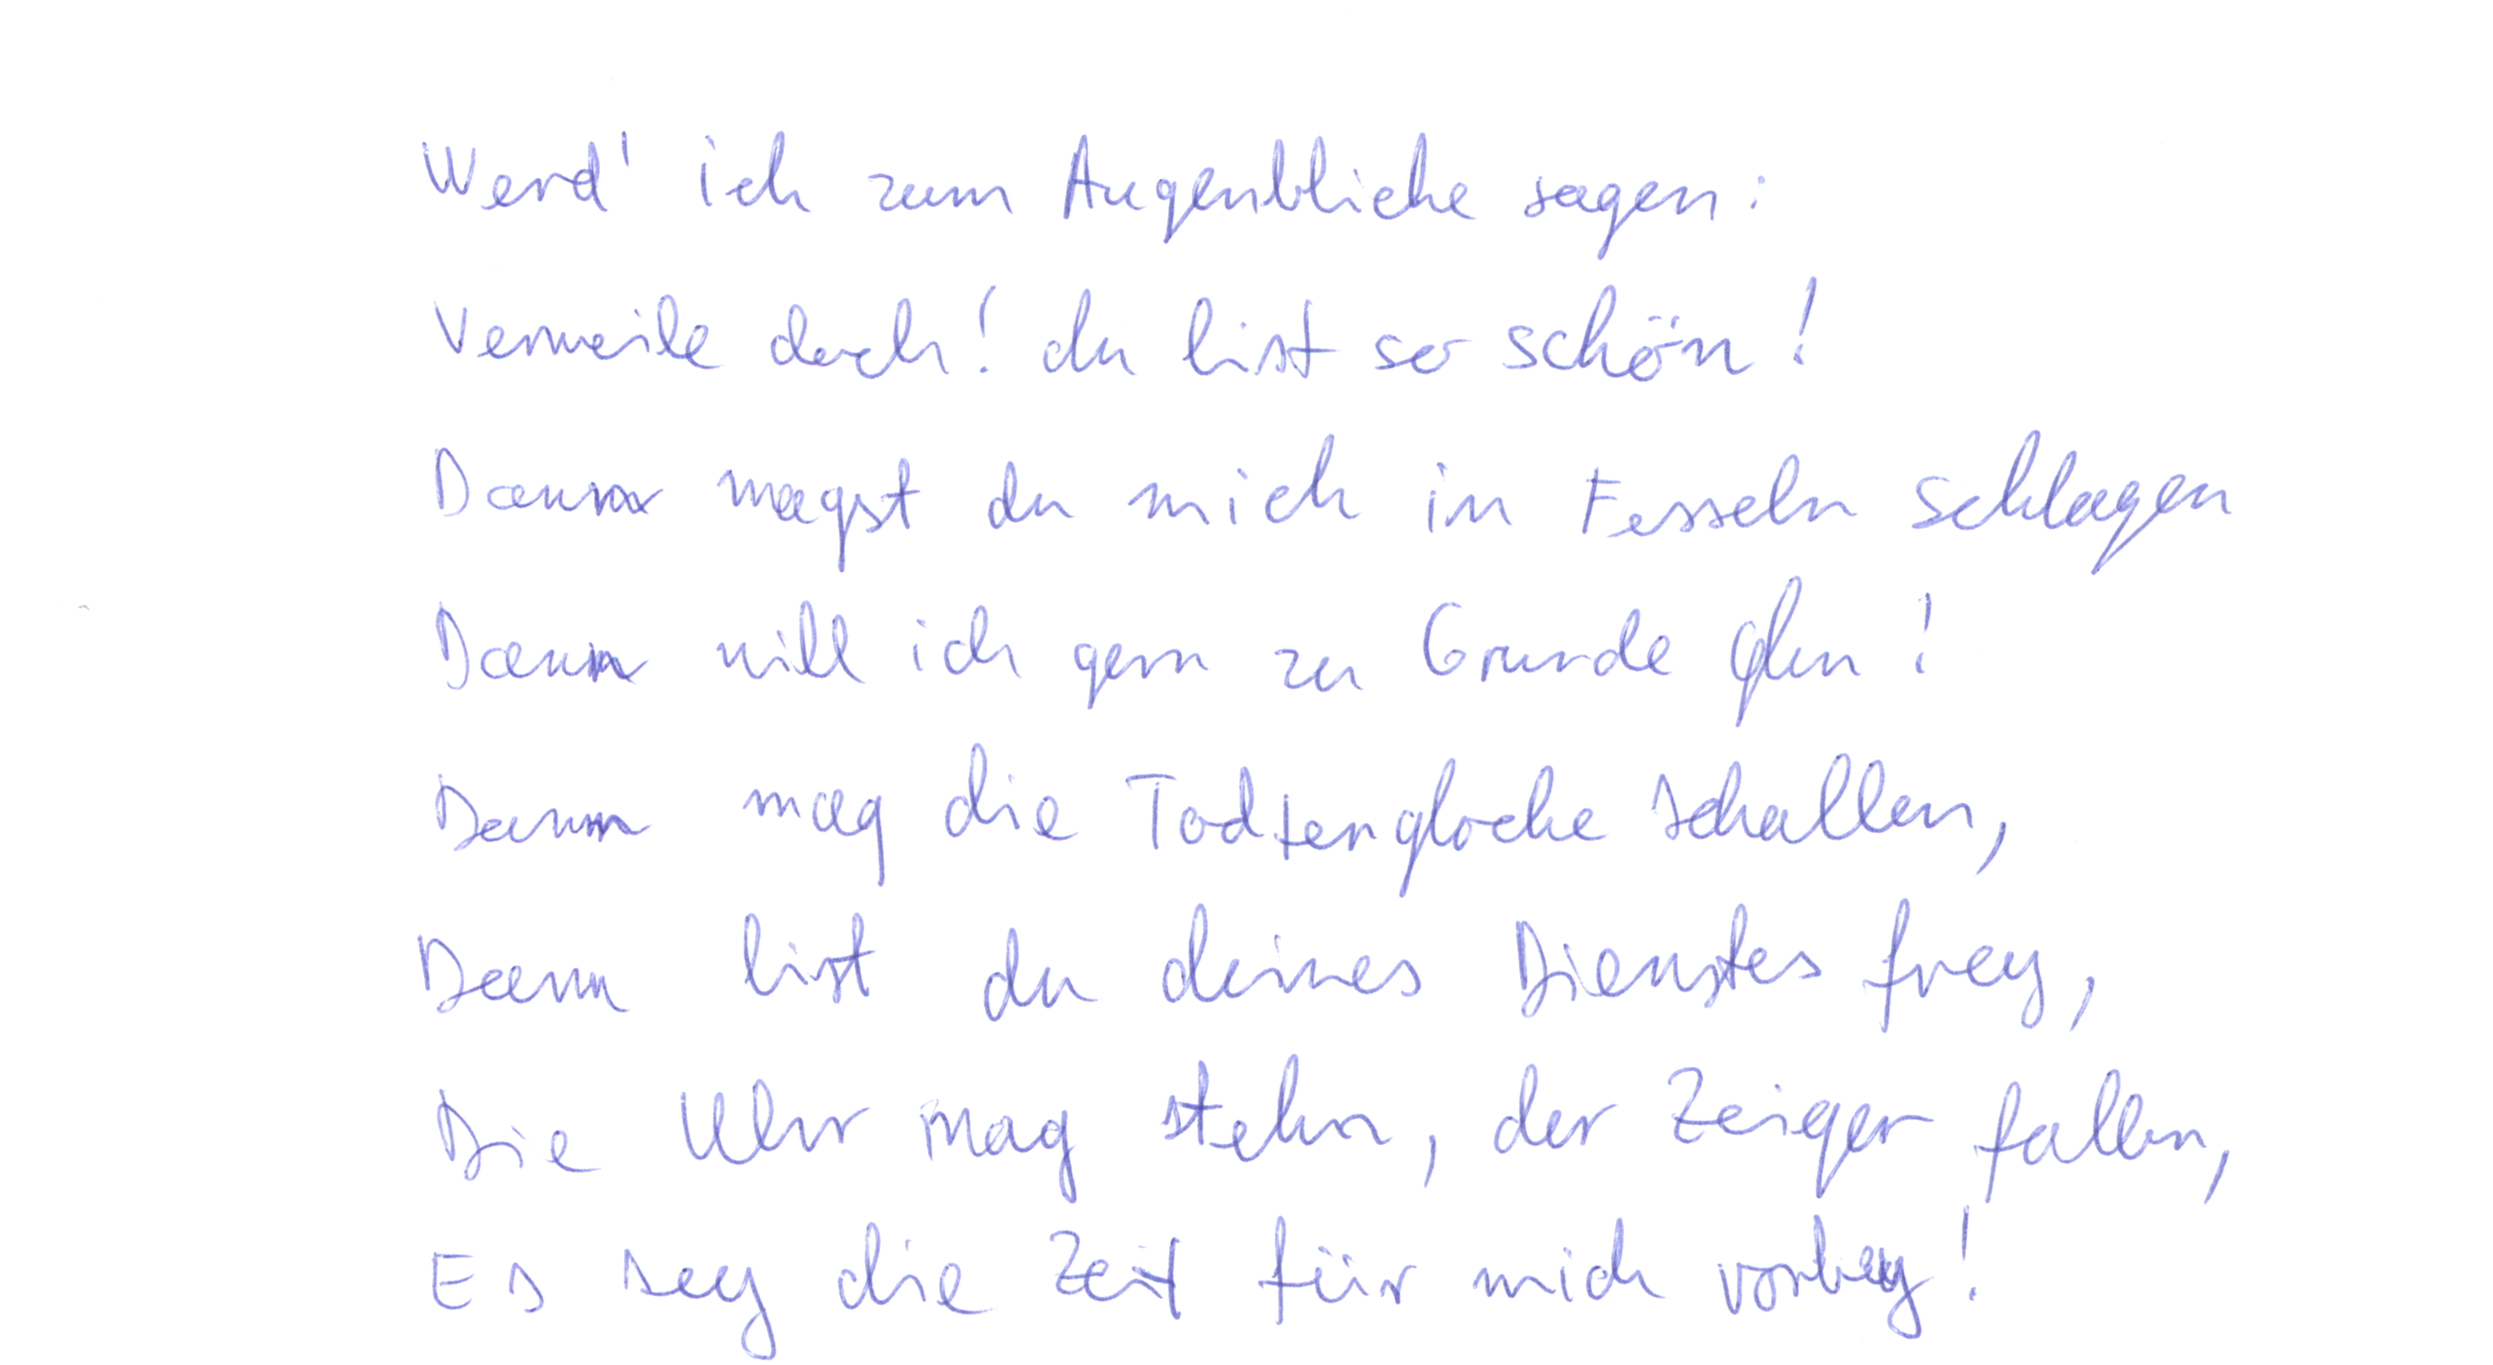 Werd' ich zum Augenblicke sagen:
Verweile doch! du bist so schön!
Dann magst du mich in Fesseln schlagen
Dann will ich gern zu Grunde gehn!
Dann mag die Todtenglocke schallen,
Dann bist du deines Dienstes frey,
Die Uhr mag stehn, der Zeiger fallen,
Es sey die Zeit für mich vorbey!